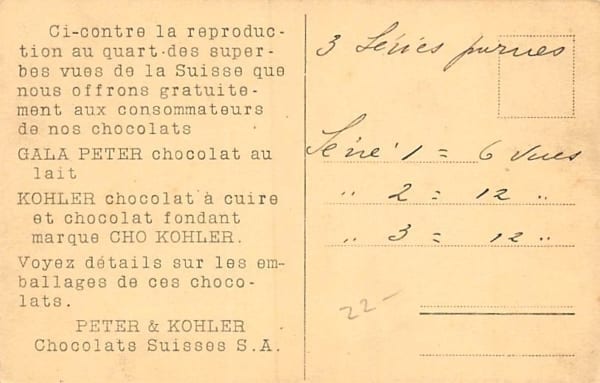 Ci-contre la reproduc-
tion au quart des super-
bes vues de la Suisse que
nous offrons gratuite-
ment aux consommateurs
de nos chocolats
GALA PETER chocolat au
lait
KOHLER chocolat à cuire
et chocolat fondant
marque CHO KOHLER.
Voyez détails sur les em-
ballages de ces choco-
lats.
PETER & KOHLER
Chocolats Suisses S.A.
3 Séries parues
Série 1 = 6 vues
" 2 = 12 "
" 3 = 12 "
22-